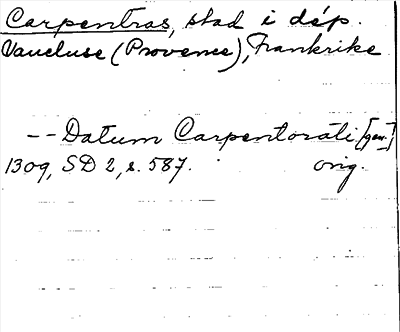 Carpentras, stad i dép.
Vaucluse (Provence), Frankrike
-- Datum Carpentorati [gen.]
1309, SD 2, s. 587. orig.